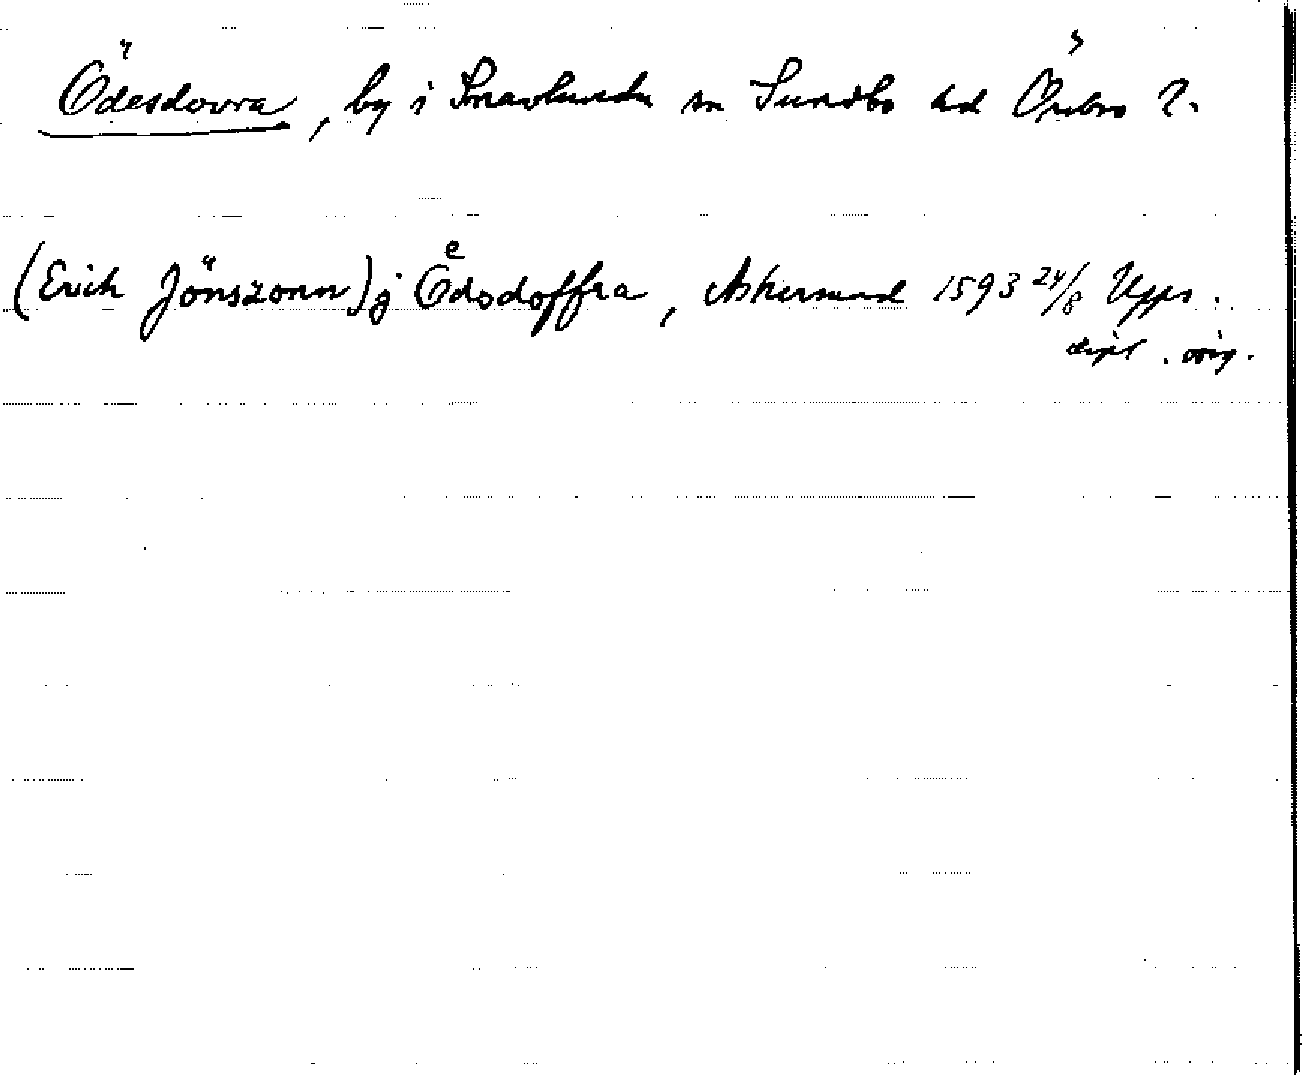 Ödesdovra, by i Snavlunda sn Sundbo hd Örebro l.
(Erich Jönszonn) j Oͤdsdoffra, Askersund 1593 24/8 Upps.
dipl. orig.